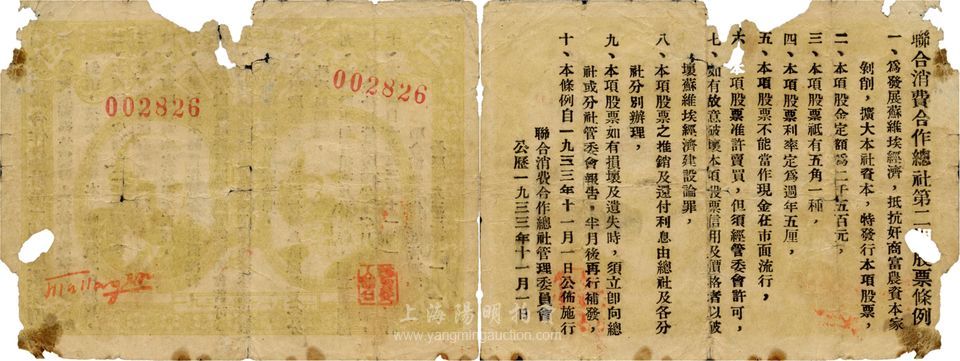 聯合消費合作總社第二 股票條例
一、爲發展蘇維埃經濟，抵抗奸商富農資本家
剝削，擴大本社資本，特發行本項股票，
二、本項股金定額爲二千五百元，
三、本項股票祇有五角一種，
四、本項股票利率定爲週年五厘，
五、本項股票不能當作現金在市面流行，
六、本項股票准許賣買，但須經管委會許可，
七、如有故意破壞本項股票信用及價格者以破
壞蘇維埃經濟建設論罪，
八、本項股票之推銷及還付利息由總社及各分
社分別辦理，
九、本項股票如有損壞及遺失時，須立卽向總
社或分社管委會報告，半月後再行補發，
十、本條例自一九三三年十一月一日公佈施行
聯合消費合作總社管理委員會
公歷一九三三年十一月一日
002826
002826
上海陽明拍賣
www.yangmingauction.com